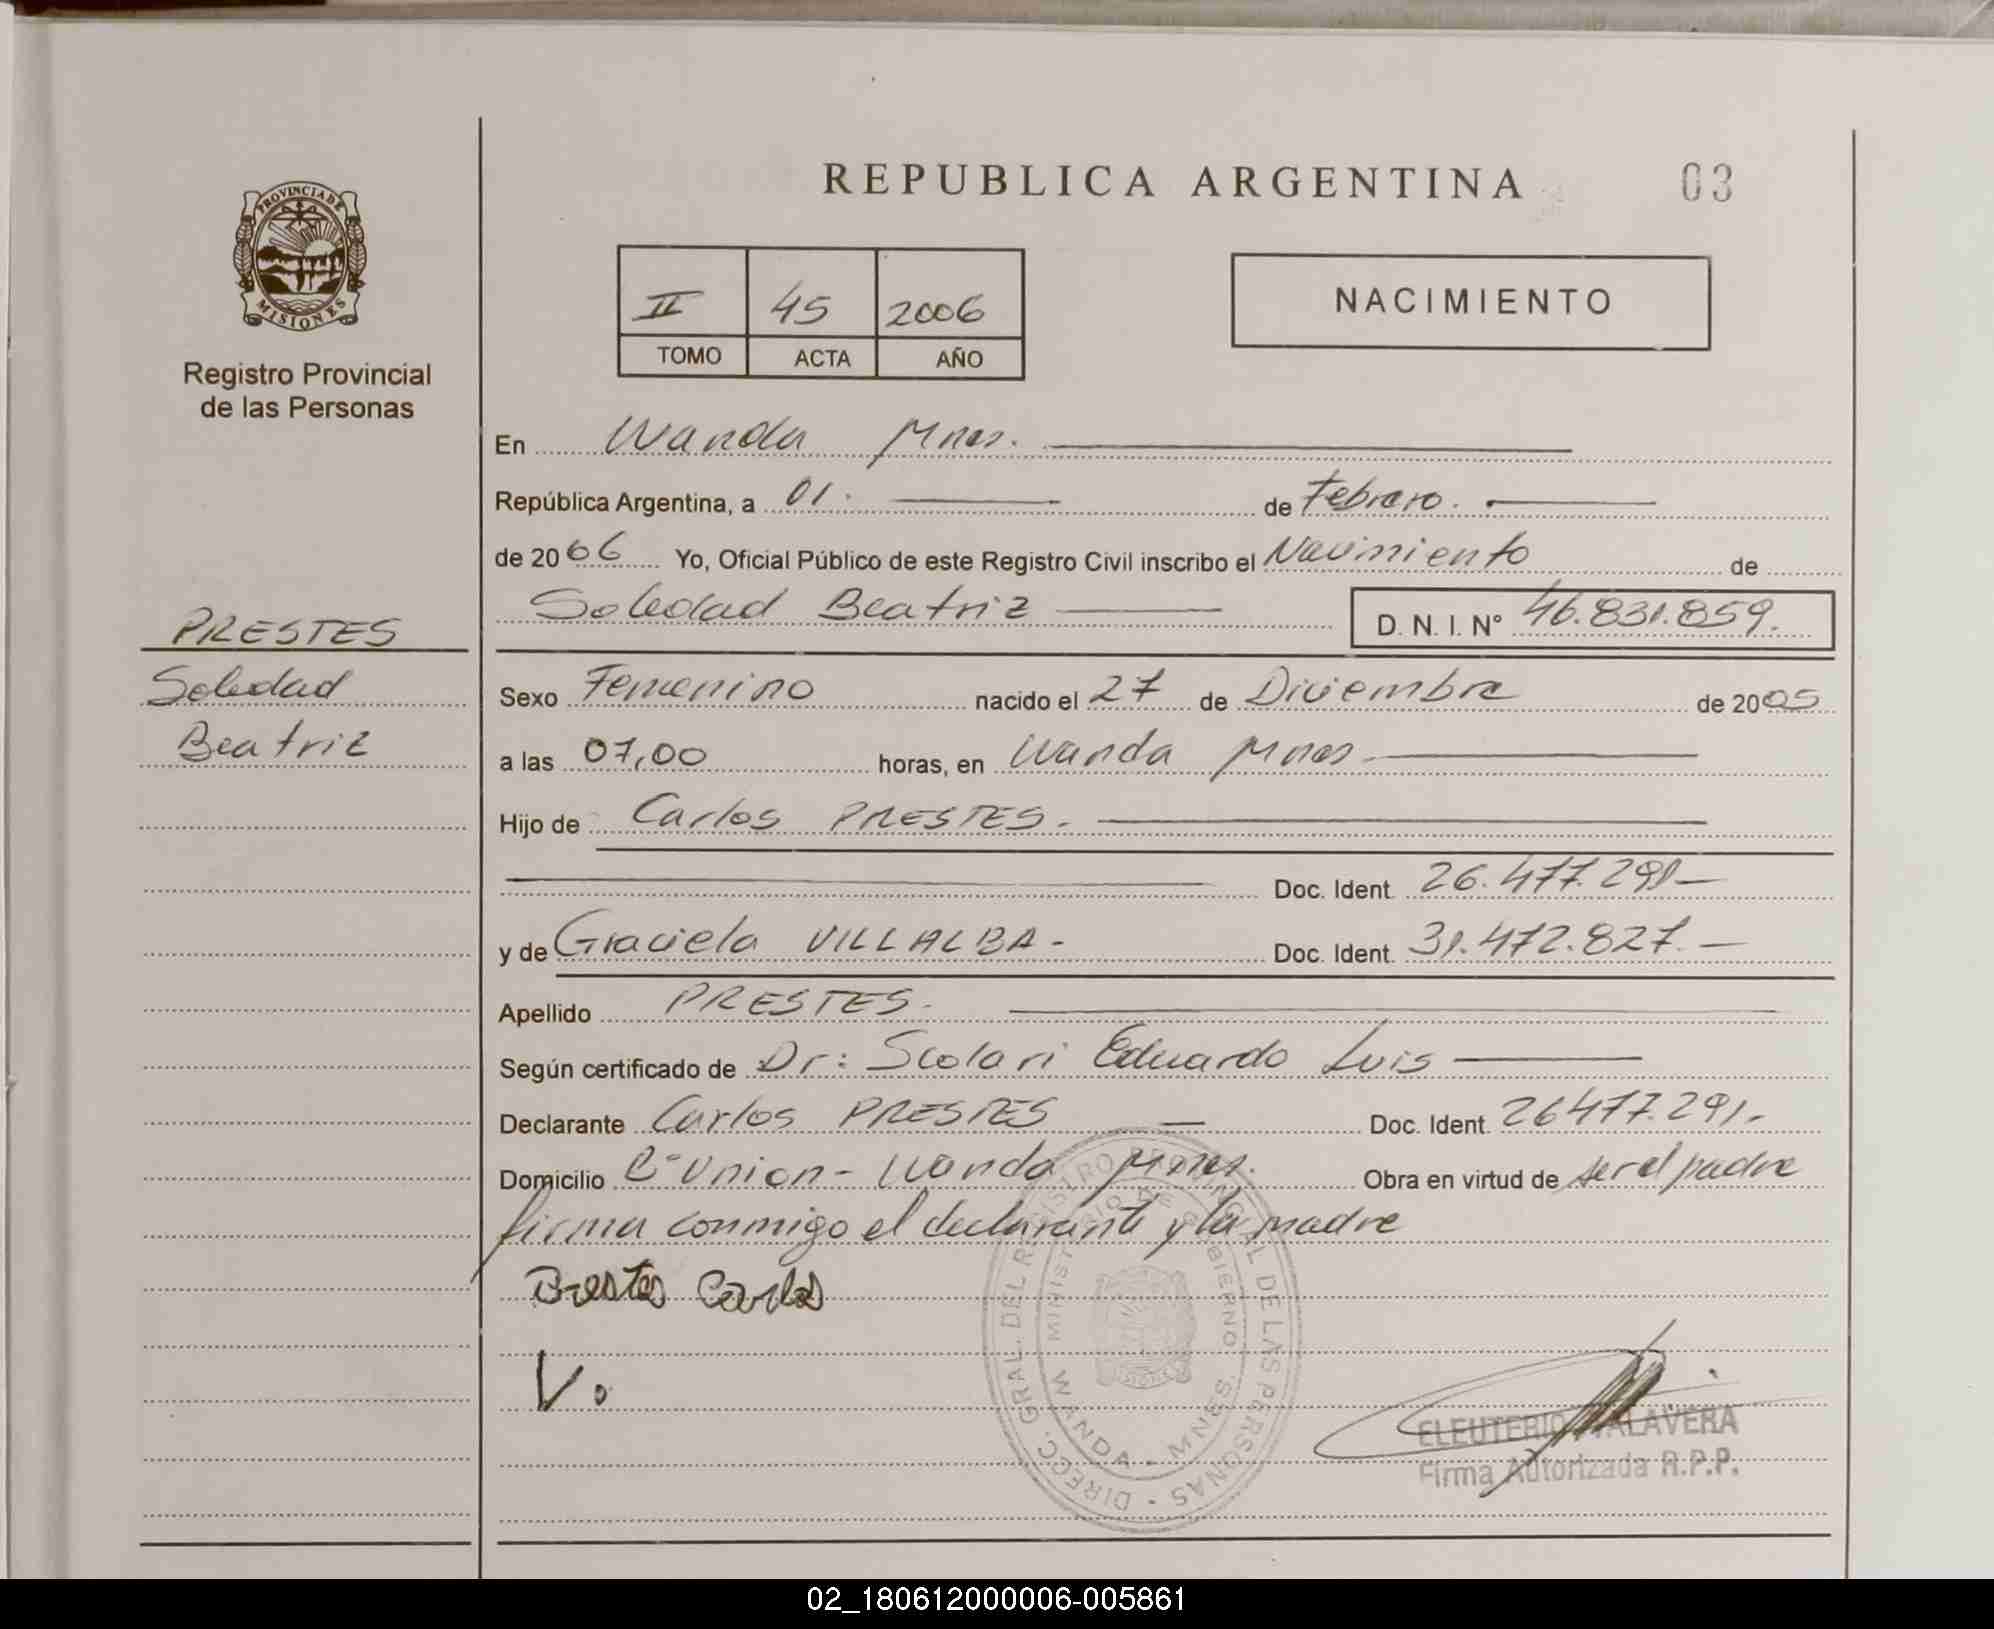 REPUBLICA ARGENTINA
03
PROVINCIA DE
MISIONES
Registro Provincial
de las Personas
II 45 2006
TOMO ACTA AÑO
NACIMIENTO
En Wanda Mnes.
República Argentina, a 01. de Febrero.
de 2006 Yo, Oficial Público de este Registro Civil inscribo el Nacimiento de
Soledad Beatriz D. N. I. N° 46.831.859.
PRESTES
Soledad
Beatriz
Sexo Femenino nacido el 27 de Diciembre de 2005
a las 07,00 horas, en Wanda Mnes
Hijo de Carlos PRESTES.
Doc. Ident. 26.477.291
y de Graciela VILLALBA - Doc. Ident. 31.472.827.
Apellido PRESTES.
Según certificado de Dr: Scolari Eduardo Luis
Declarante Carlos PRESTES Doc. Ident. 26477.291.
Domicilio B° Union - Wanda Mnes. Obra en virtud de ser el padre
firma conmigo el declarante y la madre
Prestes Carlos
V.
DIRECC. GRAL. DEL REGISTRO PROVINCIAL DE LAS PERSONAS
MINISTERIO DE GOBIERNO
WANDA - MNES.
ELEUTERIO TALAVERA
Firma Autorizada R.P.P.
02_180612000006-005861